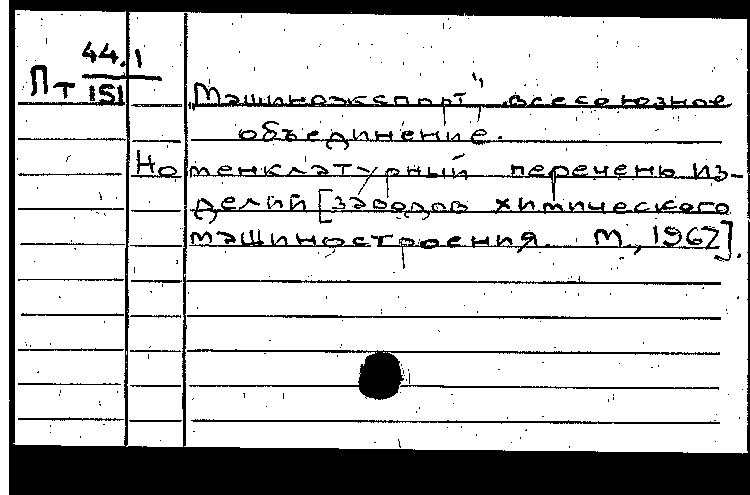 Пт 44.1/151
"Машиноэкспорт", всесоюзное
объединение.
Номенклатурный перечень из-
делий [заводов химического
машиностроения. М., 1962].